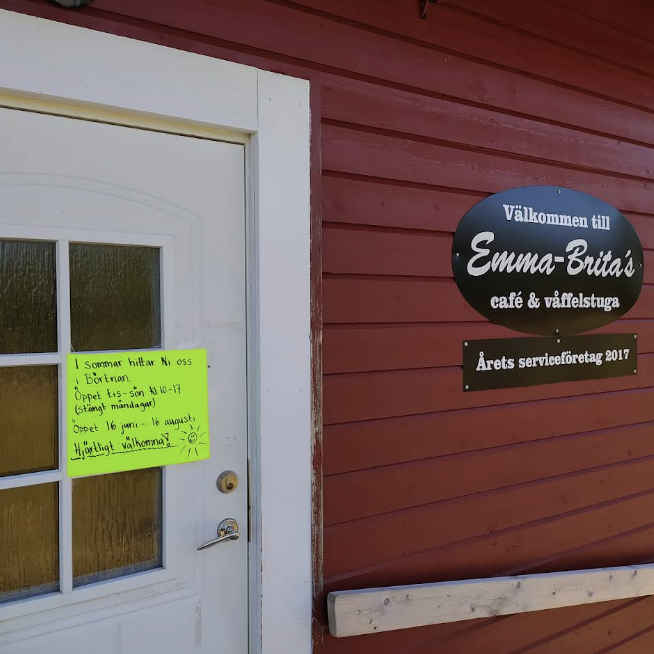 I sommar hittar Ni oss
i Börtnan.
Öppet tis-sön kl 10-17
(stängt måndagar)
Öppet 16 juni - 16 augusti
Hjärtligt välkomna!
Välkommen till
Emma-Brita's
café & våffelstuga
Årets serviceföretag 2017